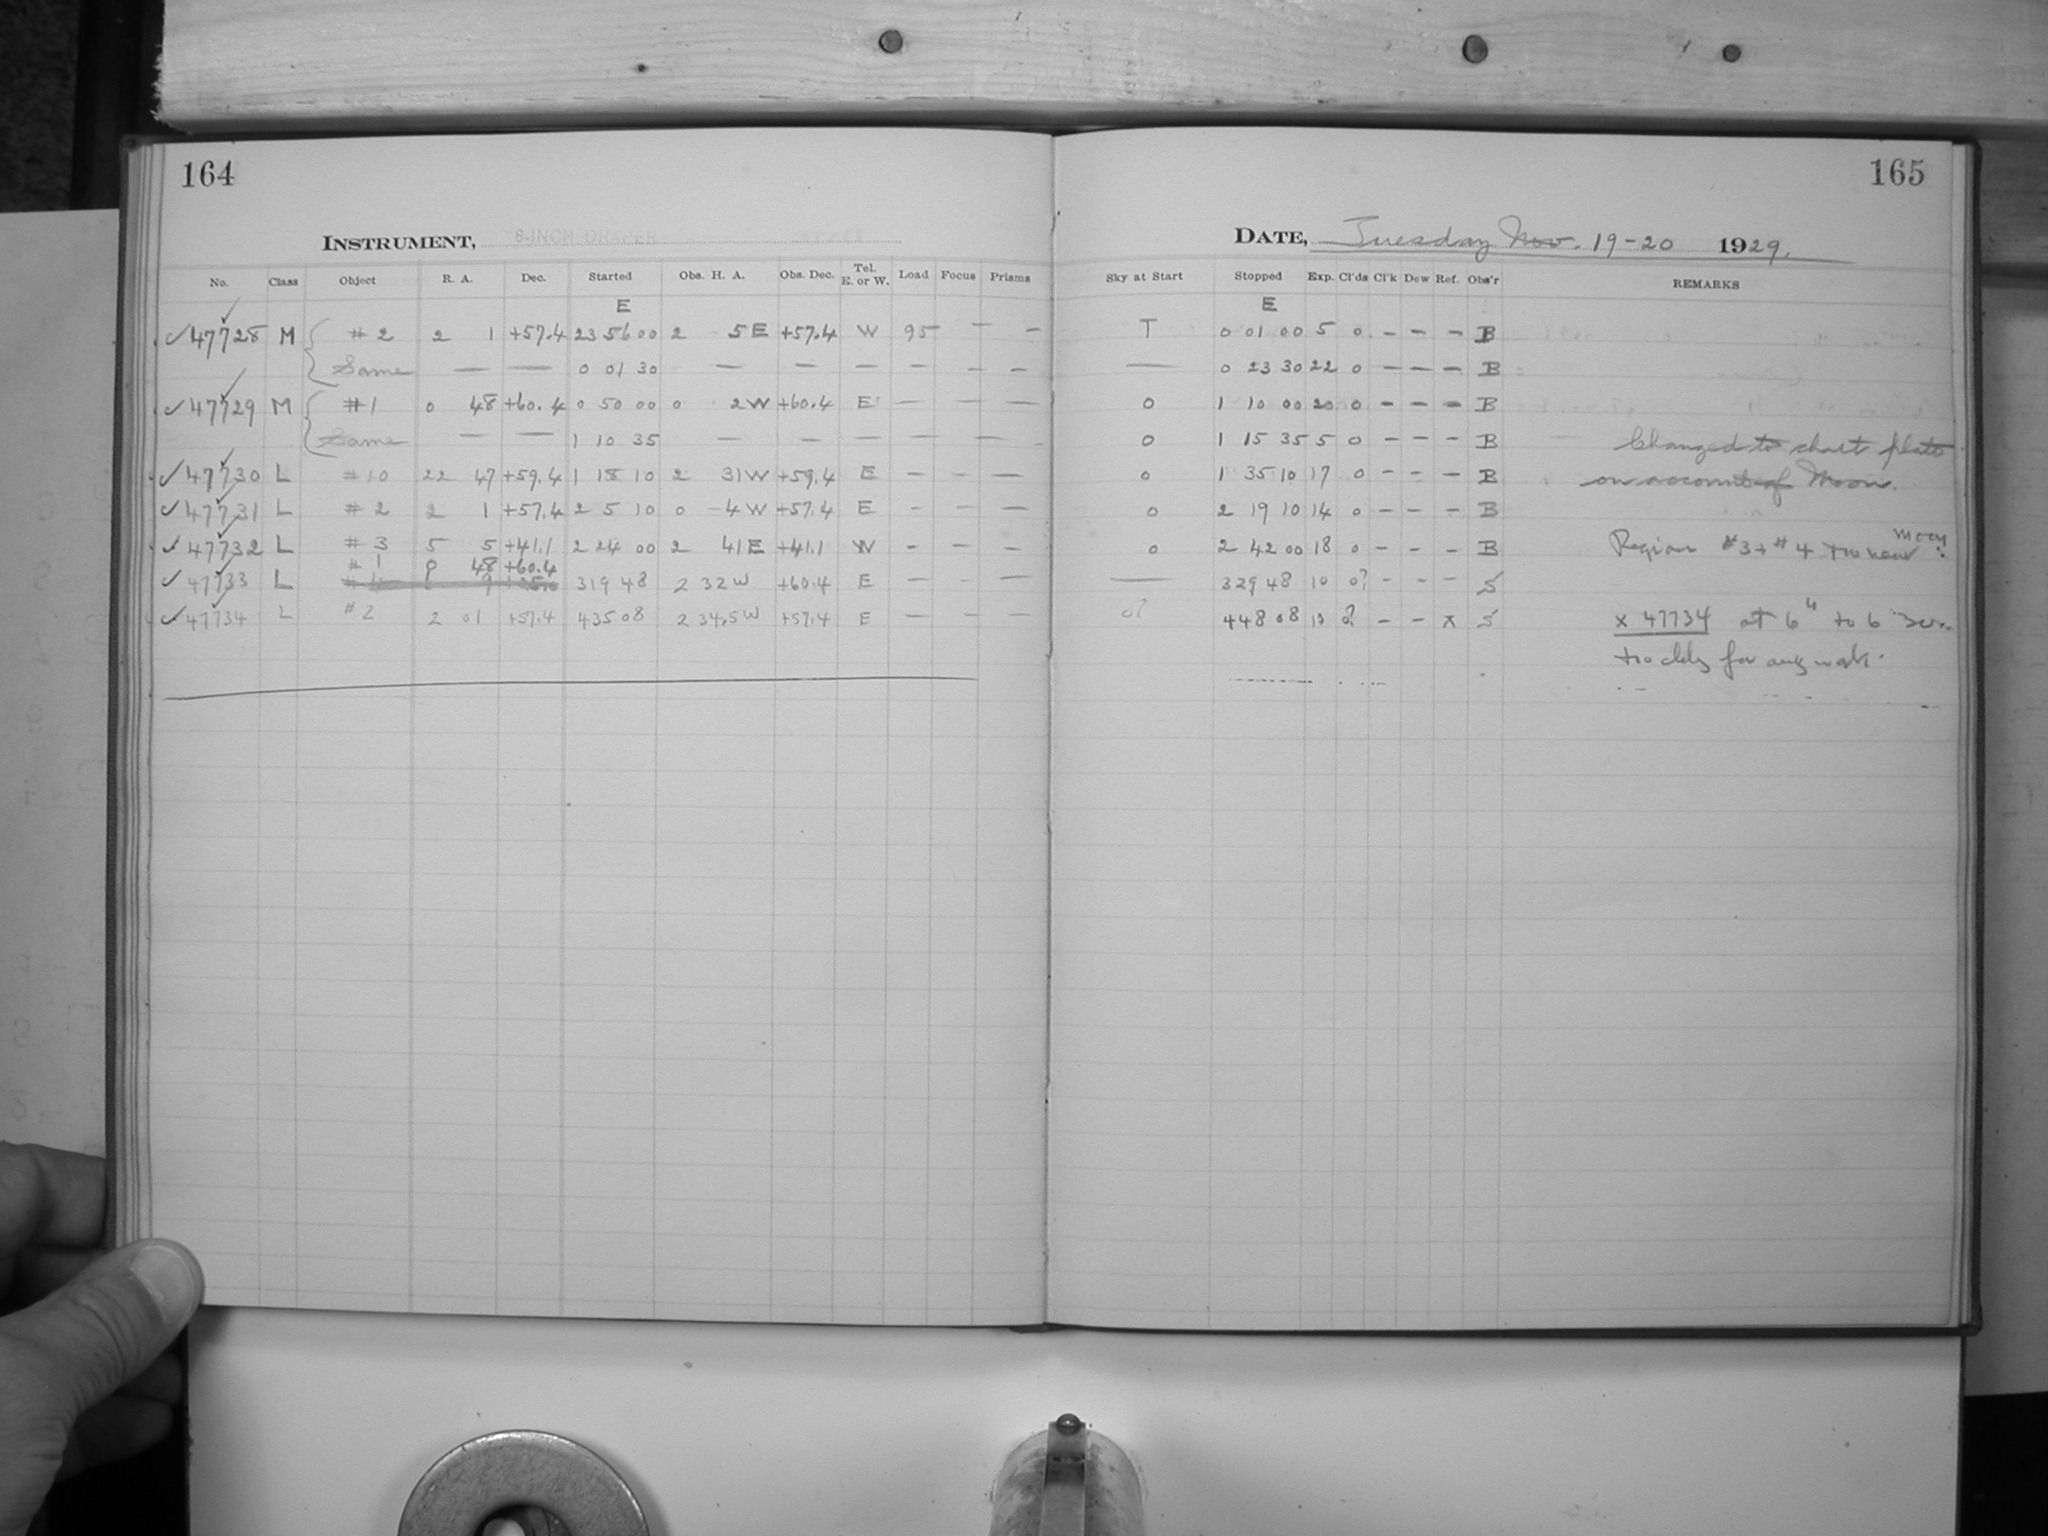 164
INSTRUMENT, 8-INCH DRAPER
No. Class Object R. A. Dec. Started Obs. H. A. Obs. Dec. Tel. E. or W. Load Focus Prisms
E
✓ 47728 M { # 2 2 1 +57.4 23 56 00 2 5 E +57.4 W 95 — —
Same — — 0 01 30 — — — — — —
✓ 47729 M { # 1 0 48 +60.4 0 50 00 0 2 W +60.4 E — — —
Same — — 1 10 35 — — — — — —
✓ 47730 L # 10 22 47 +59.4 1 18 10 2 31 W +59.4 E — — —
✓ 47731 L # 2 2 1 +57.4 2 5 10 0 4 W +57.4 E — — —
✓ 47732 L # 3 5 5 +41.1 2 24 00 2 41 E +41.1 W — — —
# 1 0 48 +60.4
✓ 47733 L 3 19 48 2 32 W +60.4 E — — —
✓ 47734 L # 2 2 01 +57.4 4 35 08 2 34.5 W +57.4 E — — —
165
DATE, Tuesday Nov. 19-20 1929.
Sky at Start Stopped Exp. Cl'ds Cl'k Dew Ref. Obs'r REMARKS
E
T 0 01 00 5 0 — — — B
— 0 23 30 22 0 — — — B
0 1 10 00 20 0 — — — B
0 1 15 35 5 0 — — — B Changed to chart plate
0 1 35 10 17 0 — — — B on account of Moon.
0 2 19 10 14 0 — — — B
0 2 42 00 18 0 — — — B Region # 3 + # 4 too near Moon.
— 3 29 48 10 0? — — — S
0? 4 48 08 13 0? — — x S x 47734 at 6 to 6
too cldy for any work.